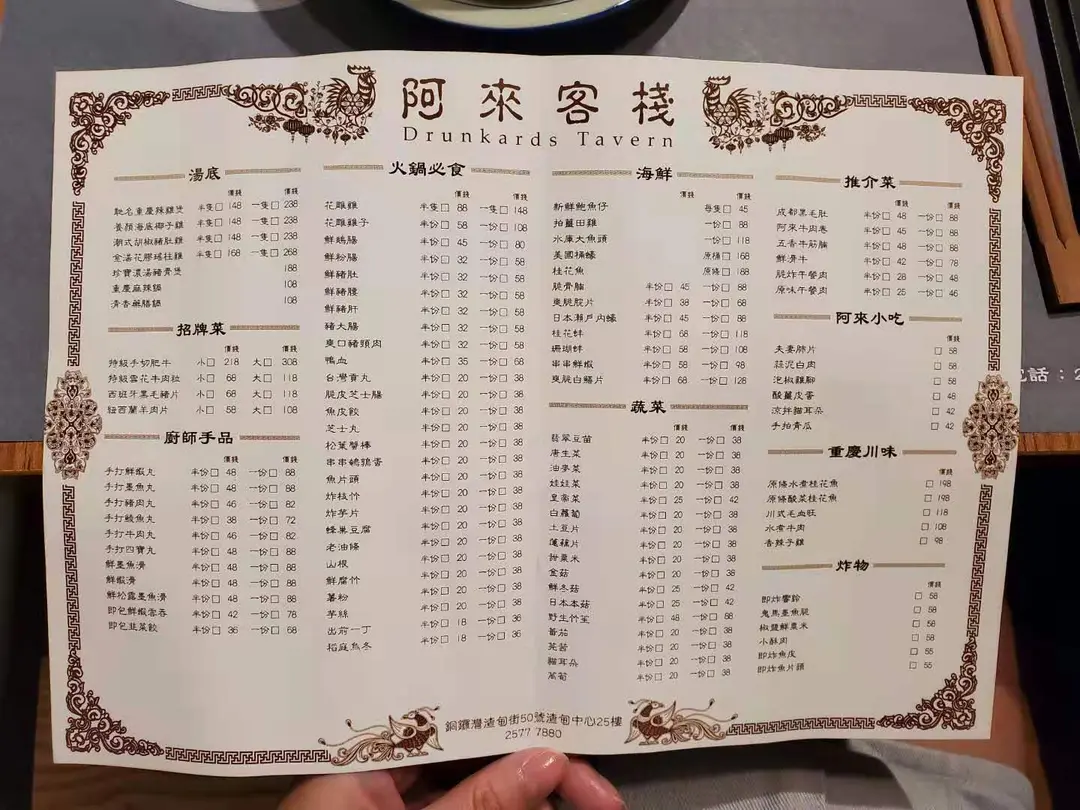 阿來客棧
Drunkards Tavern
湯底
價錢 價錢
馳名重慶辣雞煲 半隻□ 148 一隻□ 238
養顏海底椰子雞 半隻□ 148 一隻□ 238
潮式胡椒豬肚雞 半隻□ 148 一隻□ 238
金湯花膠瑤柱雞 半隻□ 168 一隻□ 268
珍寶濃湯豬骨煲 188
重慶麻辣鍋 108
清香藥膳鍋 108
招牌菜
價錢 價錢
特級手切肥牛 小□ 218 大□ 308
特級雪花牛肉粒 小□ 68 大□ 118
西班牙黑毛豬片 小□ 68 大□ 118
紐西蘭羊肉片 小□ 58 大□ 108
廚師手品
價錢 價錢
手打鮮蝦丸 半份□ 48 一份□ 88
手打墨魚丸 半份□ 48 一份□ 88
手打豬肉丸 半份□ 46 一份□ 82
手打鯪魚丸 半份□ 38 一份□ 72
手打牛肉丸 半份□ 46 一份□ 82
手打四寶丸 半份□ 48 一份□ 88
鮮墨魚滑 半份□ 48 一份□ 88
鮮蝦滑 半份□ 48 一份□ 88
鮮松露墨魚滑 半份□ 48 一份□ 88
即包鮮蝦雲吞 半份□ 42 一份□ 78
即包韭菜餃 半份□ 36 一份□ 68
火鍋必食
價錢 價錢
花雕雞 半隻□ 88 一隻□ 148
花雕雞子 半份□ 58 一份□ 108
鮮鵝腸 半份□ 45 一份□ 80
鮮粉腸 半份□ 32 一份□ 58
鮮豬肚 半份□ 32 一份□ 58
鮮豬膶 半份□ 32 一份□ 58
鮮豬肝 半份□ 32 一份□ 58
豬大腸 半份□ 32 一份□ 58
爽口豬頸肉 半份□ 32 一份□ 58
鴨血 半份□ 35 一份□ 68
台灣貢丸 半份□ 20 一份□ 38
脆皮芝士腸 半份□ 20 一份□ 38
魚皮餃 半份□ 20 一份□ 38
芝士丸 半份□ 20 一份□ 38
松葉蟹棒 半份□ 20 一份□ 38
串串鵪鶉蛋 半份□ 20 一份□ 38
魚片頭 半份□ 20 一份□ 38
炸枝竹 半份□ 20 一份□ 38
炸芋片 半份□ 20 一份□ 38
蜂巢豆腐 半份□ 20 一份□ 38
老油條 半份□ 20 一份□ 38
山根 半份□ 20 一份□ 38
鮮腐竹 半份□ 20 一份□ 38
薯粉 半份□ 20 一份□ 38
芋絲 半份□ 20 一份□ 38
出前一丁 半份□ 18 一份□ 36
稻庭烏冬 半份□ 18 一份□ 36
海鮮
價錢 價錢
新鮮鮑魚仔 每隻□ 45
拍薑田雞 一份□ 88
水庫大魚頭 一份□ 118
美國桶蠔 原桶□ 168
桂花魚 原條□ 188
脆骨腩 半份□ 45 一份□ 88
爽脆脘片 半份□ 38 一份□ 68
日本瀨戶內蠔 半份□ 45 一份□ 88
桂花蚌 半份□ 68 一份□ 118
珊瑚蚌 半份□ 58 一份□ 108
串串鮮蝦 半份□ 58 一份□ 98
爽脆白鱔片 半份□ 68 一份□ 128
蔬菜
價錢 價錢
翡翠豆苗 半份□ 20 一份□ 38
唐生菜 半份□ 20 一份□ 38
油麥菜 半份□ 20 一份□ 38
娃娃菜 半份□ 20 一份□ 38
皇帝菜 半份□ 25 一份□ 42
白蘿蔔 半份□ 20 一份□ 38
土豆片 半份□ 20 一份□ 38
蓮藕片 半份□ 20 一份□ 38
粟米 半份□ 20 一份□ 38
金菇 半份□ 20 一份□ 38
鮮冬菇 半份□ 25 一份□ 42
日本本菇 半份□ 25 一份□ 42
野生竹笙 半份□ 48 一份□ 88
番茄 半份□ 20 一份□ 38
芫茜 半份□ 20 一份□ 38
貓耳朵 半份□ 20 一份□ 38
萵筍 半份□ 20 一份□ 38
推介菜
價錢 價錢
成都黑毛肚 半份□ 48 一份□ 88
阿來牛肉卷 半份□ 48 一份□ 88
五香牛筋腩 半份□ 45 一份□ 88
鮮滑牛 半份□ 42 一份□ 78
脆炸午餐肉 半份□ 28 一份□ 48
原味午餐肉 半份□ 25 一份□ 46
阿來小吃
價錢
夫妻肺片 □ 58
蒜泥白肉 □ 58
泡椒雞腳 □ 58
酸薑皮蛋 □ 48
涼拌貓耳朵 □ 42
手拍青瓜 □ 42
重慶川味
價錢
原條水煮桂花魚 □ 198
原條酸菜桂花魚 □ 198
川式毛血旺 □ 118
水煮牛肉 □ 108
香辣子雞 □ 98
炸物
價錢
即炸響鈴 □ 58
鬼馬墨魚脆 □ 58
椒鹽鮮粟米 □ 58
小酥肉 □ 58
即炸魚皮 □ 55
即炸魚片頭 □ 55
銅鑼灣渣甸街50號渣甸中心25樓
2577 7880
電話：2